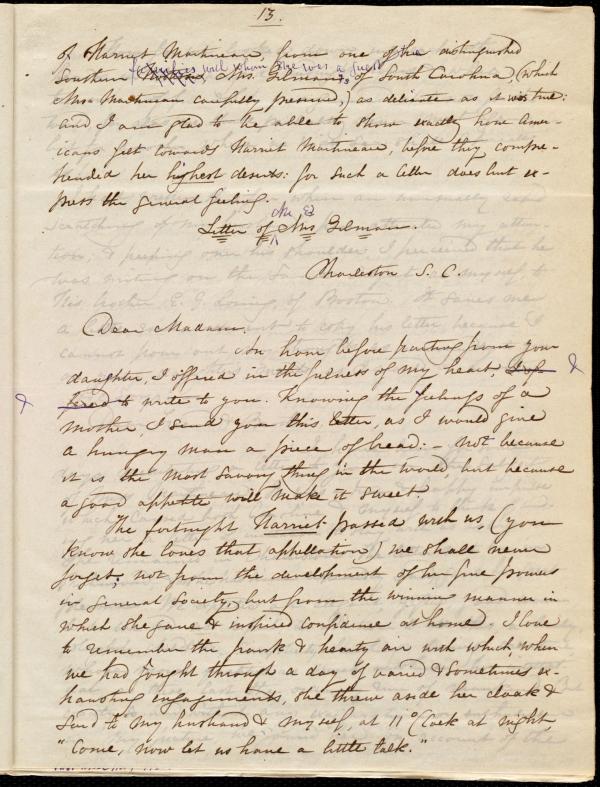 13.
of Harriet Martineau from one of the distinguished
families with whom she was a guest
Southern Mrs. Gilman, of South Carolina, (which
Mrs. Martineau carefully preserved,) as delicate as it was true:
and I am glad to be able to show exactly how Amer-
icans felt towards Harriet Martineau, before they compre-
hended her highest deserts: for such a letter does but ex-
press the general feeling.
Letter of Mrs Gilman.
Charleston S. C.
Dear Madam,
An hour before parting from your
daughter, I offered in the fulness of my heart, &
& to write to you. Knowing the feelings of a
mother, I send you this letter, as I would give
a hungry man a piece of bread: - not because
it is the most savory thing in the world, but because
a good appetite will make it sweet.
The fortnight Harriet passed with us, (you
know she loves that appellation) we shall never
forget; not from the development of her fine powers
in general society, but from the winning manner in
which she gave & inspired confidence at home. I love
to remember the frank & hearty air with which, when
we had fought through a day of varied & sometimes ex-
hausting engagements, she threw aside her cloak &
said to my husband & myself, at 11 o'Clock at night,
"Come, now let us have a little talk."